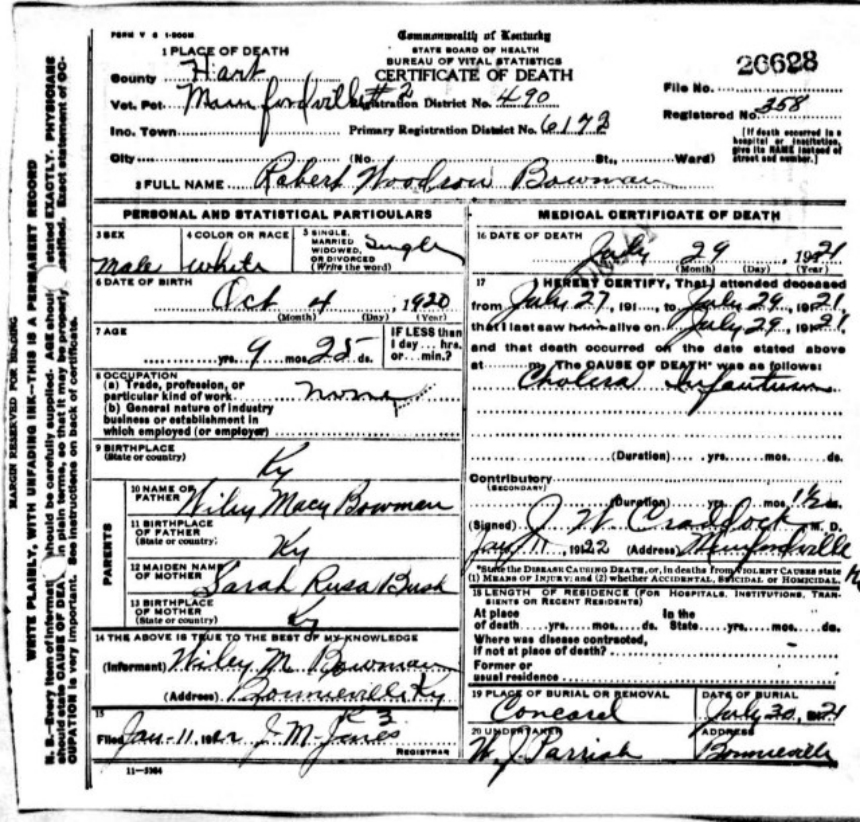 FORM V S 1-500M
Commonwealth of Kentucky
STATE BOARD OF HEALTH
BUREAU OF VITAL STATISTICS
CERTIFICATE OF DEATH
26628
1 PLACE OF DEATH
County Hart
Vot. Pct. Munfordville #2 Registration District No. 490
File No.
Registered No. 358
Inc. Town Primary Registration District No. 6172
[If death occurred in a hospital or institution, give its NAME instead of street and number.]
City (No. St., Ward)
2 FULL NAME Robert Woodson Bowman
PERSONAL AND STATISTICAL PARTICULARS
3 SEX
male
4 COLOR OR RACE
white
5 SINGLE, MARRIED WIDOWED, OR DIVORCED (Write the word)
Single
6 DATE OF BIRTH
Oct 4 1920
(Month) (Day) (Year)
7 AGE
yrs. 9 mos. 25 ds.
IF LESS than 1 day... hrs. or... min.?
8 OCCUPATION
(a) Trade, profession, or
particular kind of work none
(b) General nature of industry
business or establishment in
which employed (or employer)
9 BIRTHPLACE
(State or country)
Ky
PARENTS
10 NAME OF FATHER
Wiley Macy Bowman
11 BIRTHPLACE OF FATHER
(State or country)
Ky
12 MAIDEN NAME OF MOTHER
Sarah Rusa Bush
13 BIRTHPLACE OF MOTHER
(State or country)
Ky
14 THE ABOVE IS TRUE TO THE BEST OF MY KNOWLEDGE
(Informant) Wiley M Bowman
(Address) Bonnieville Ky
R 3
15
Filed Jan-11, 1922 J. M. Jones
REGISTRAR
11-3184
MEDICAL CERTIFICATE OF DEATH
16 DATE OF DEATH
July 29, 1921
(Month) (Day) (Year)
17 I HEREBY CERTIFY, That I attended deceased
from July 27, 191..., to July 29, 1921,
that I last saw him alive on July 29, 1921,
and that death occurred on the date stated above
at m. The CAUSE OF DEATH* was as follows:
Cholera Infantum
(Duration) yrs. mos. ds.
Contributory
(SECONDARY)
(Duration) yrs. mos. ds.
(Signed) J. W. Craddock M. D.
Jan 11, 1922 (Address) Munfordville
*State the DISEASE CAUSING DEATH, or, in deaths from VIOLENT CAUSES state
(1) MEANS OF INJURY; and (2) whether ACCIDENTAL, SUICIDAL or HOMICIDAL.
18 LENGTH OF RESIDENCE (FOR HOSPITALS, INSTITUTIONS, TRAN-
SIENTS OR RECENT RESIDENTS)
At place of death yrs. mos. ds. In the State yrs. mos. ds.
Where was disease contracted,
if not at place of death?
Former or
usual residence
19 PLACE OF BURIAL OR REMOVAL
Concord
DATE OF BURIAL
July 30, 1921
20 UNDERTAKER
W. J. Parrish
ADDRESS
Bonnieville
MARGIN RESERVED FOR BINDING
WRITE PLAINLY, WITH UNFADING INK—THIS IS A PERMANENT RECORD
N. B.—Every item of information should be carefully supplied. AGE should stated EXACTLY. PHYSICIANS
should state CAUSE OF DEA in plain terms, so that it may be properly classified. Exact statement of OC-
CUPATION is very important. See instructions on back of certificate.